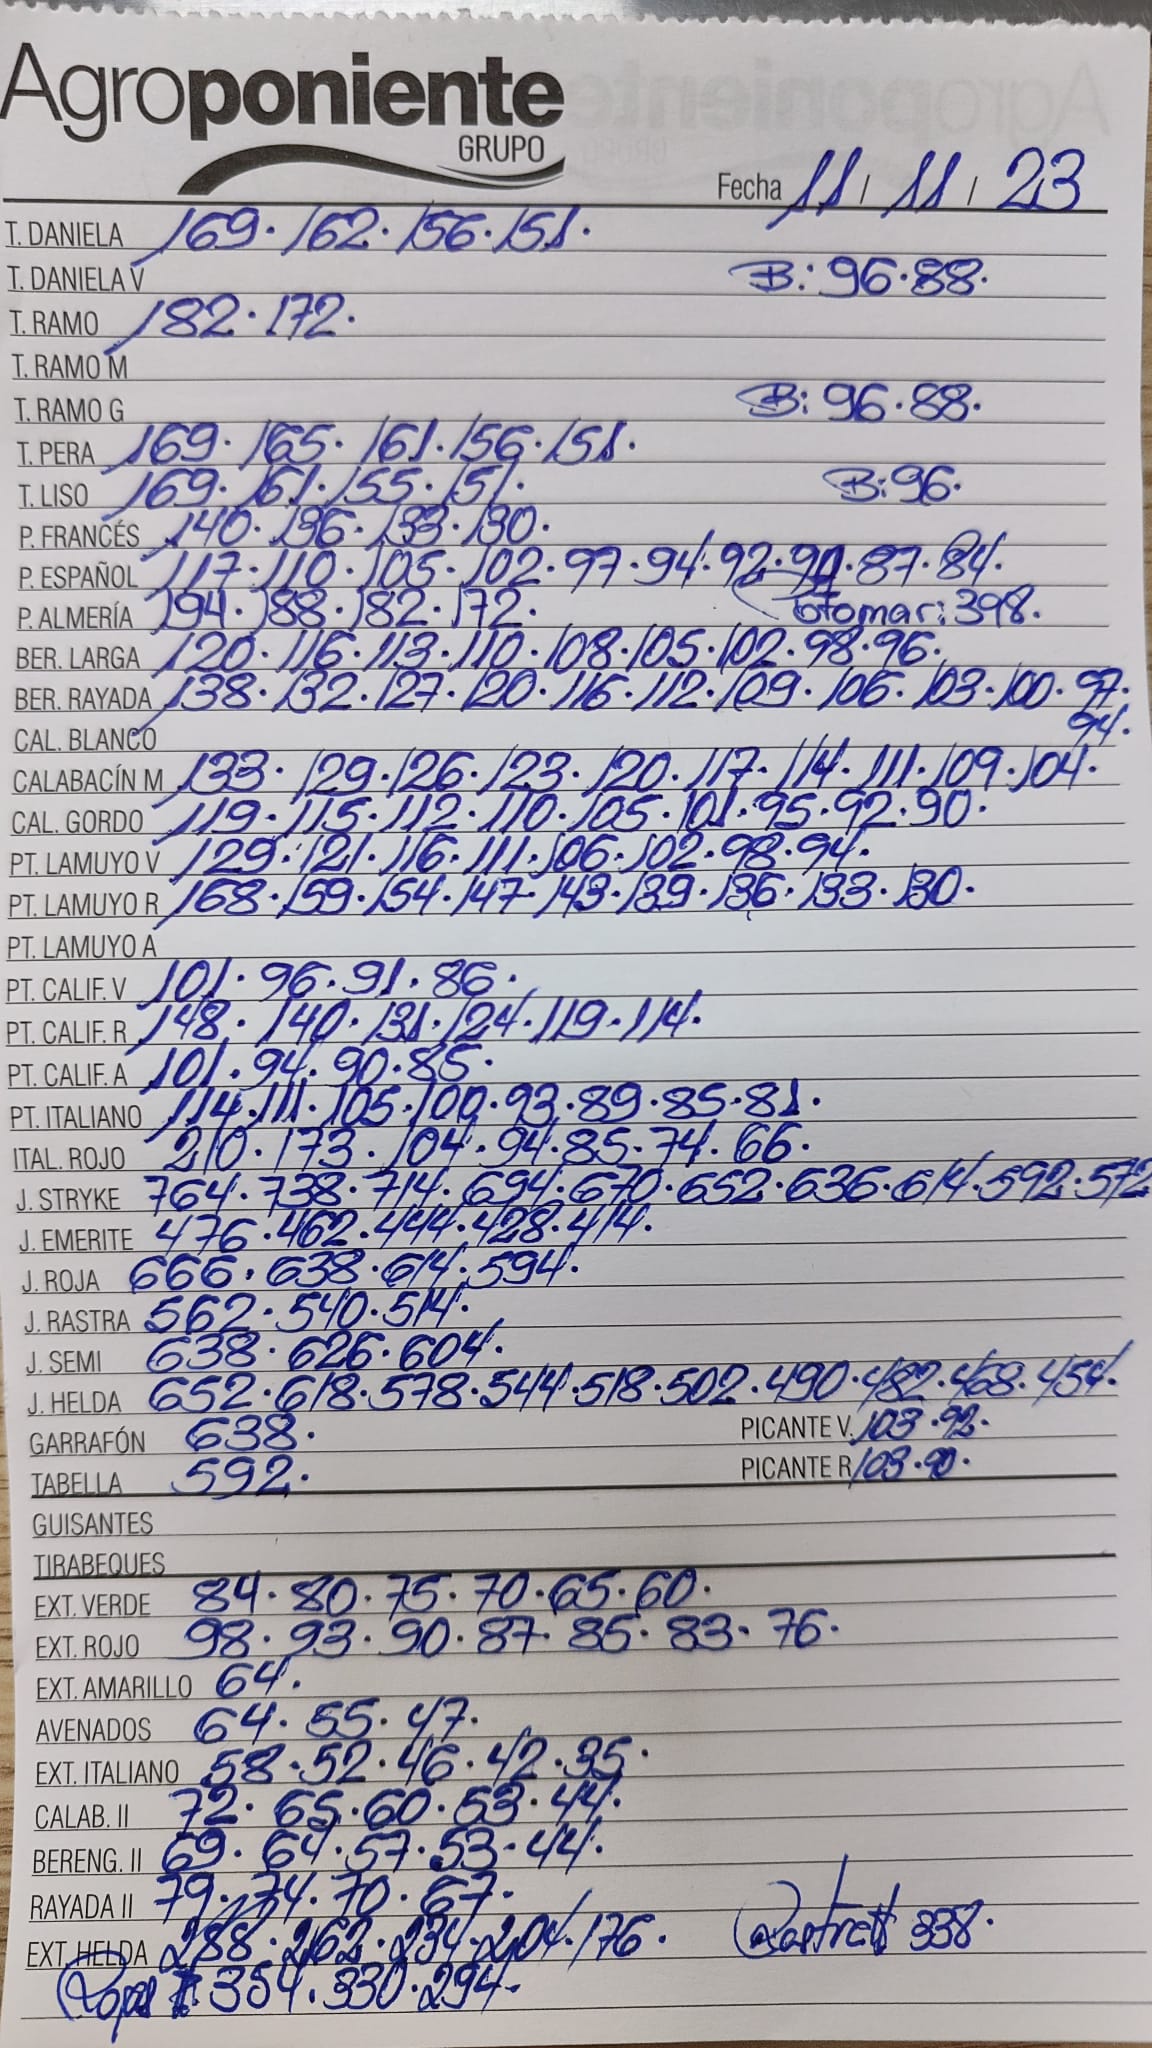 Agroponiente
GRUPO
Fecha 11 / 11 / 23
T. DANIELA 169. 162. 156. 151.
T. DANIELA V B: 96. 88.
T. RAMO 182. 172.
T. RAMO M
T. RAMO G B: 96. 88.
T. PERA 169. 165. 161. 156. 151.
T. LISO 169. 161. 155. 151. B: 96.
P. FRANCÉS 140. 136. 133. 130.
P. ESPAÑOL 117. 110. 105. 102. 97. 94. 92. 90. 87. 84.
P. ALMERÍA 194. 188. 182. 172. 398.
BER. LARGA 120. 116. 113. 110. 108. 105. 102. 98. 96.
BER. RAYADA 138. 132. 127. 120. 116. 112. 109. 106. 103. 100. 97.
CAL. BLANCO 94.
CALABACÍN M 133. 129. 126. 123. 120. 117. 114. 111. 109. 104.
CAL. GORDO 119. 115. 112. 110. 105. 101. 95. 92. 90.
PT. LAMUYO V 129. 121. 116. 111. 106. 102. 98. 94.
PT. LAMUYO R 168. 159. 154. 147. 143. 139. 136. 133. 130.
PT. LAMUYO A
PT. CALIF. V 101. 96. 91. 86.
PT. CALIF. R 148. 140. 131. 124. 119. 114.
PT. CALIF. A 101. 94. 90. 85.
PT. ITALIANO 114. 111. 105. 100. 93. 89. 85. 81.
ITAL. ROJO 210. 173. 104. 94. 85. 74. 66.
J. STRYKE 764. 738. 714. 694. 670. 652. 636. 614. 592. 572
J. EMERITE 476. 462. 444. 428. 414.
J. ROJA 666. 638. 614. 594.
J. RASTRA 562. 540. 514.
J. SEMI 638. 626. 604.
J. HELDA 652. 618. 578. 544. 518. 502. 490. 482. 468. 454.
GARRAFÓN 638. PICANTE V. 103. 92.
TABELLA 592. PICANTE R 103. 90.
GUISANTES
TIRABEQUES
EXT. VERDE 84. 80. 75. 70. 65. 60.
EXT. ROJO 98. 93. 90. 87. 85. 83. 76.
EXT. AMARILLO 64.
AVENADOS 64. 55. 47.
EXT. ITALIANO 58. 52. 46. 42. 35.
CALAB. II 72. 65. 60. 53. 44.
BERENG. II 69. 64. 57. 53. 44.
RAYADA II 79. 74. 70. 67.
EXT. HELDA 288. 262. 234. 204. 176. 338.
354. 330. 294.